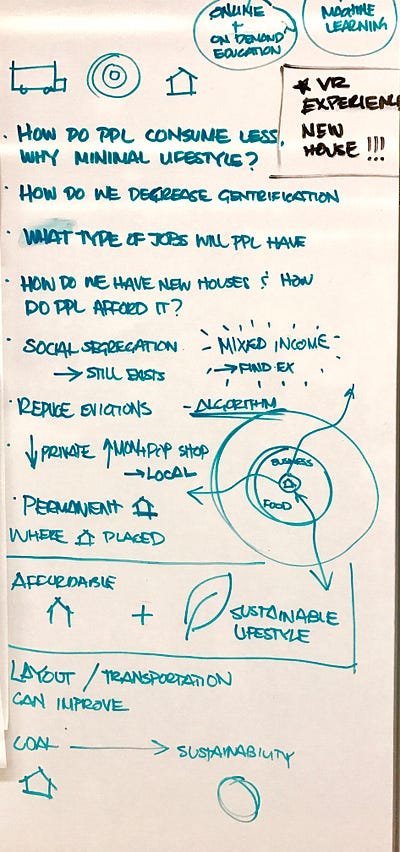 ONLINE
+
ON DEMAND
EDUCATION
MACHINE
LEARNING
* VR
EXPERIENCE
NEW
HOUSE !!!
· HOW DO PPL CONSUME LESS,
WHY MINIMAL LIFESTYLE?
· HOW DO WE DECREASE GENTRIFICATION
· WHAT TYPE OF JOBS WILL PPL HAVE
· HOW DO WE HAVE NEW HOUSES & HOW
DO PPL AFFORD IT?
· SOCIAL SEGREGATION - MIXED INCOME -
→ STILL EXISTS → FIND EX
· REDUCE EVICTIONS - ALGORITHM
· ↓ PRIVATE ↑ MOM+POP SHOP
→ LOCAL
BUSINESS
FOOD
· PERMANENT
WHERE PLACED
AFFORDABLE
+ SUSTAINABLE
LIFESTYLE
LAYOUT / TRANSPORTATION
CAN IMPROVE
COAL → SUSTAINABILITY